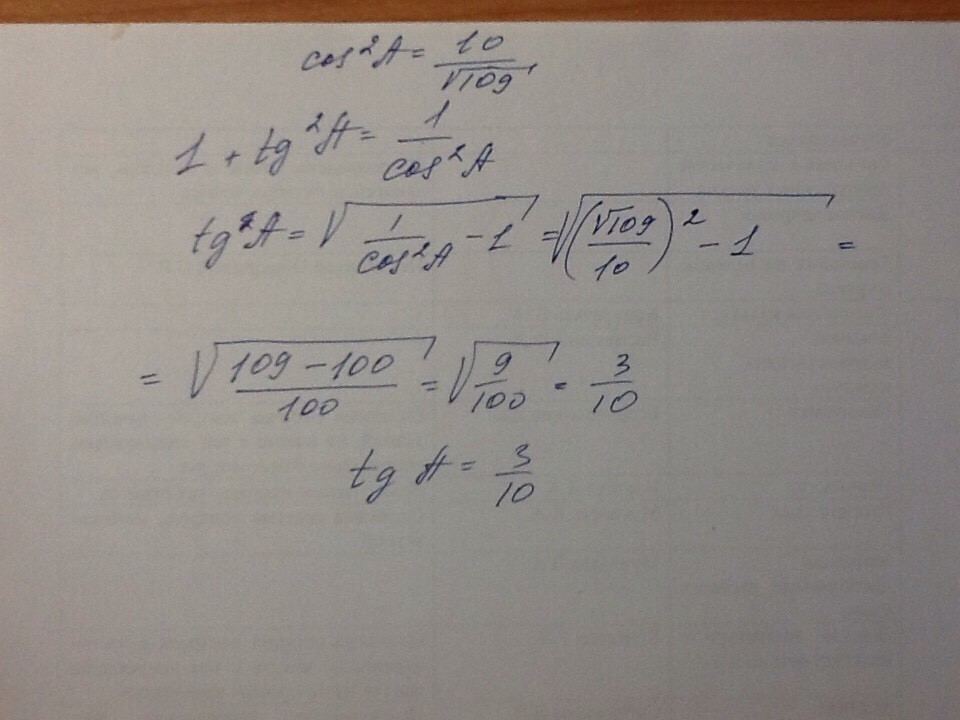 cos²A = 10/√109
1 + tg²A = 1/cos²A
tg²A = √(1/cos²A - 1) = √((√109/10)² - 1) =
= √((109 - 100)/100) = √(9/100) = 3/10
tg A = 3/10